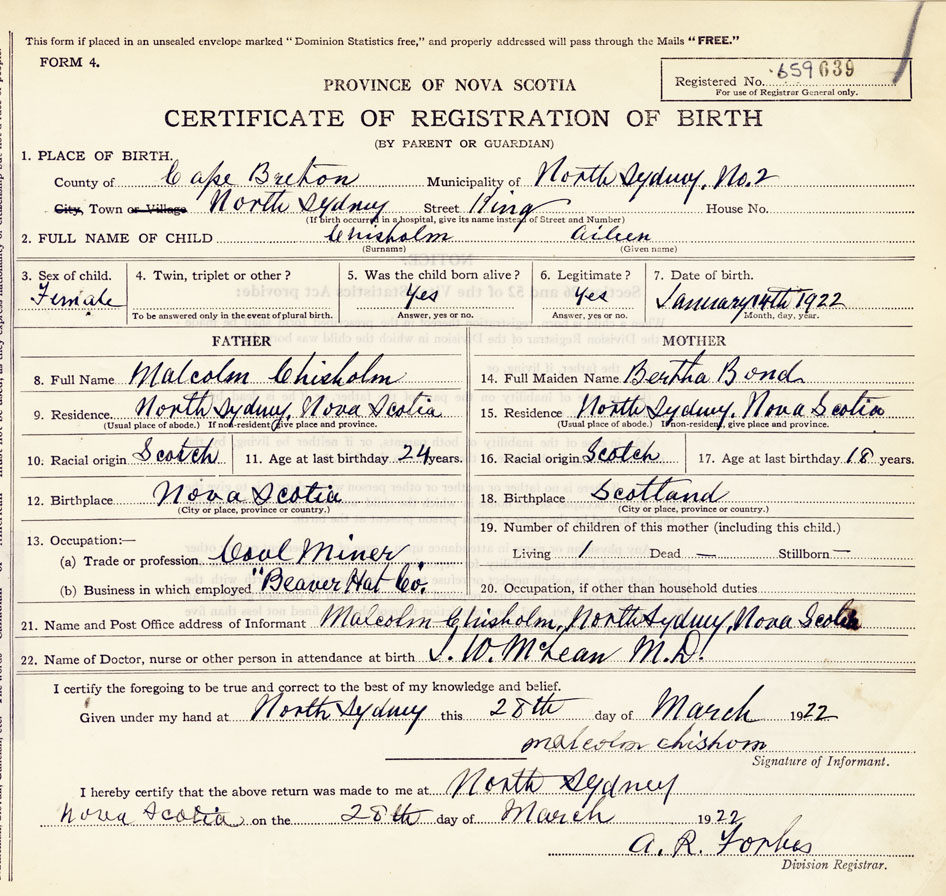 This form if placed in an unsealed envelope marked "Dominion Statistics free," and properly addressed will pass through the Mails "FREE."
FORM 4.
Registered No. 659639
For use of Registrar General only.
PROVINCE OF NOVA SCOTIA
CERTIFICATE OF REGISTRATION OF BIRTH
(BY PARENT OR GUARDIAN)
1. PLACE OF BIRTH.
County of Cape Breton Municipality of North Sydney, No. 2
City, Town or Village North Sydney Street King House No.
(If birth occurred in a hospital, give its name instead of Street and Number)
2. FULL NAME OF CHILD Chisholm Aileen
(Surname) (Given name)
3. Sex of child. 4. Twin, triplet or other? 5. Was the child born alive? 6. Legitimate? 7. Date of birth.
Female Yes Yes January 14th 1922
To be answered only in the event of plural birth. Answer, yes or no. Answer, yes or no. Month, day, year.
FATHER MOTHER
8. Full Name Malcolm Chisholm 14. Full Maiden Name Bertha Bond
9. Residence. North Sydney, Nova Scotia 15. Residence North Sydney, Nova Scotia
(Usual place of abode.) If non-resident, give place and province. (Usual place of abode.) If non-resident, give place and province.
10. Racial origin Scotch 11. Age at last birthday 24 years. 16. Racial origin Scotch 17. Age at last birthday 18 years.
12. Birthplace Nova Scotia 18. Birthplace Scotland
(City or place, province or country.) (City or place, province or country.)
19. Number of children of this mother (including this child.)
13. Occupation:—
(a) Trade or profession Coal Miner Living 1 Dead — Stillborn —
(b) Business in which employed "Beaver Hat Co". 20. Occupation, if other than household duties
21. Name and Post Office address of Informant Malcolm Chisholm, North Sydney, Nova Scotia
22. Name of Doctor, nurse or other person in attendance at birth W. McLean M.D.
I certify the foregoing to be true and correct to the best of my knowledge and belief.
Given under my hand at North Sydney this 28th day of March 1922
malcolm chishom
Signature of Informant.
I hereby certify that the above return was made to me at North Sydney
Nova Scotia on the 28th day of March 1922
A. R. Forbes
Division Registrar.